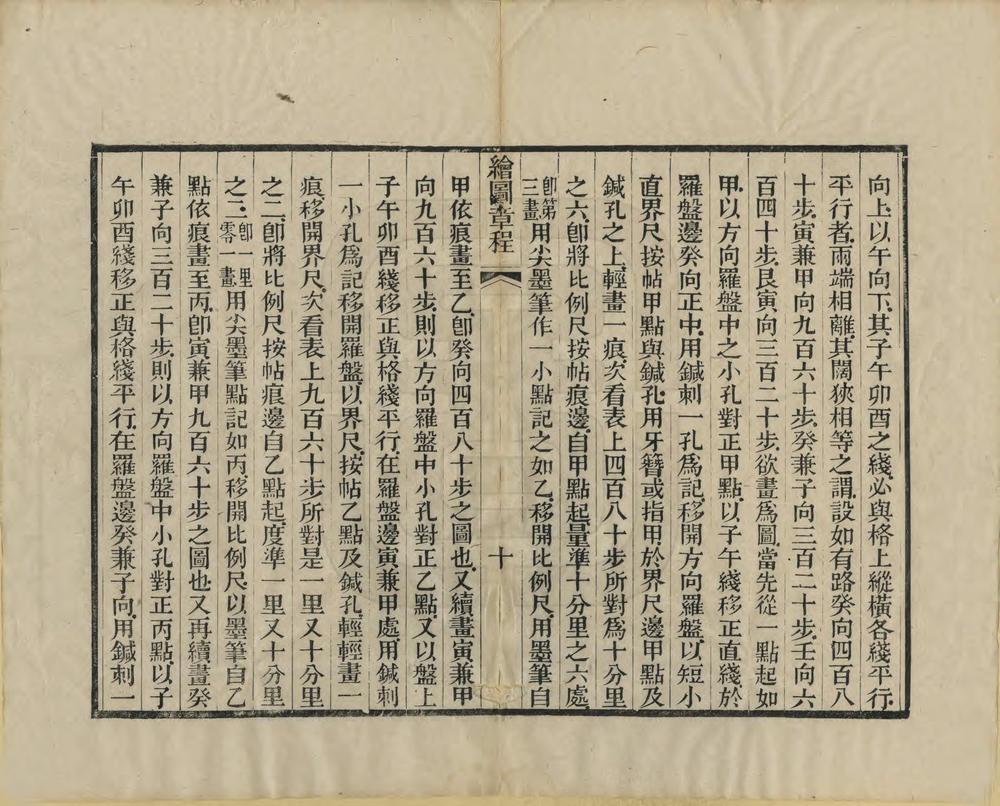 向上以午向下其子午卯酉之綫必與格上縱橫各綫平行
平行者兩端相離其闊狹相等之謂設如有路癸向四百八
十步寅兼甲向九百六十步癸兼子向三百二十步壬向六
百四十步艮寅向三百二十步欲畫爲圖當先從一點起如
甲以方向羅盤中之小孔對正甲點以子午綫移正直綫於
羅盤邊癸向正中用鍼刺一孔爲記移開方向羅盤以短小
直界尺按帖甲點與鍼孔用牙簪或指甲於界尺邊甲點及
鍼孔之上輕畫一痕次看表上四百八十步所對爲十分里
之六卽將比例尺按帖痕邊自甲點起量準十分里之六處
卽第三畫用尖墨筆作一小點記之如乙移開比例尺用墨筆自
繪圖章程
十
甲依痕畫至乙卽癸向四百八十步之圖也又續畫寅兼甲
向九百六十步則以方向羅盤中小孔對正乙點又以盤上
子午卯酉綫移正與格綫平行在羅盤邊寅兼甲處用鍼刺
一小孔爲記移開羅盤以界尺按帖乙點及鍼孔輕輕畫一
痕移開界尺次看表上九百六十步所對是一里又十分里
之二卽將比例尺按帖痕邊自乙點起度準一里又十分里
之二卽一里零一畫用尖墨筆點記如丙移開比例尺以墨筆自乙
點依痕畫至丙卽寅兼甲九百六十步之圖也又再續畫癸
兼子向三百二十步則以方向羅盤中小孔對正丙點以子
午卯酉綫移正與格綫平行在羅盤邊癸兼子向用鍼刺一